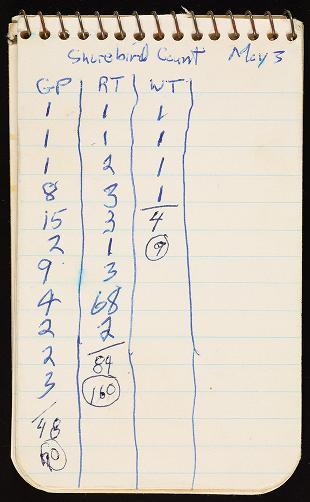 Shorebird Count May 3
GP RT WT
1 1 1
1 1 1
1 2 1
8 3 1
15 3 4
2 1 9
9 3
4 68
2 2
2 84
3 160
48
90